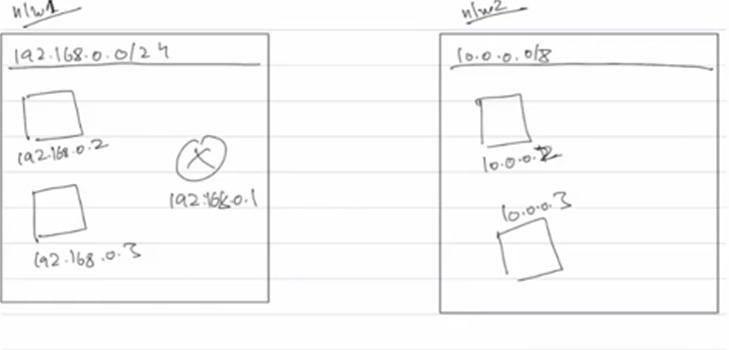 n/w1
192.168.0.0/24
192.168.0.2
192.168.0.1
192.168.0.3
n/w2
10.0.0.0/8
10.0.0.2
10.0.0.3